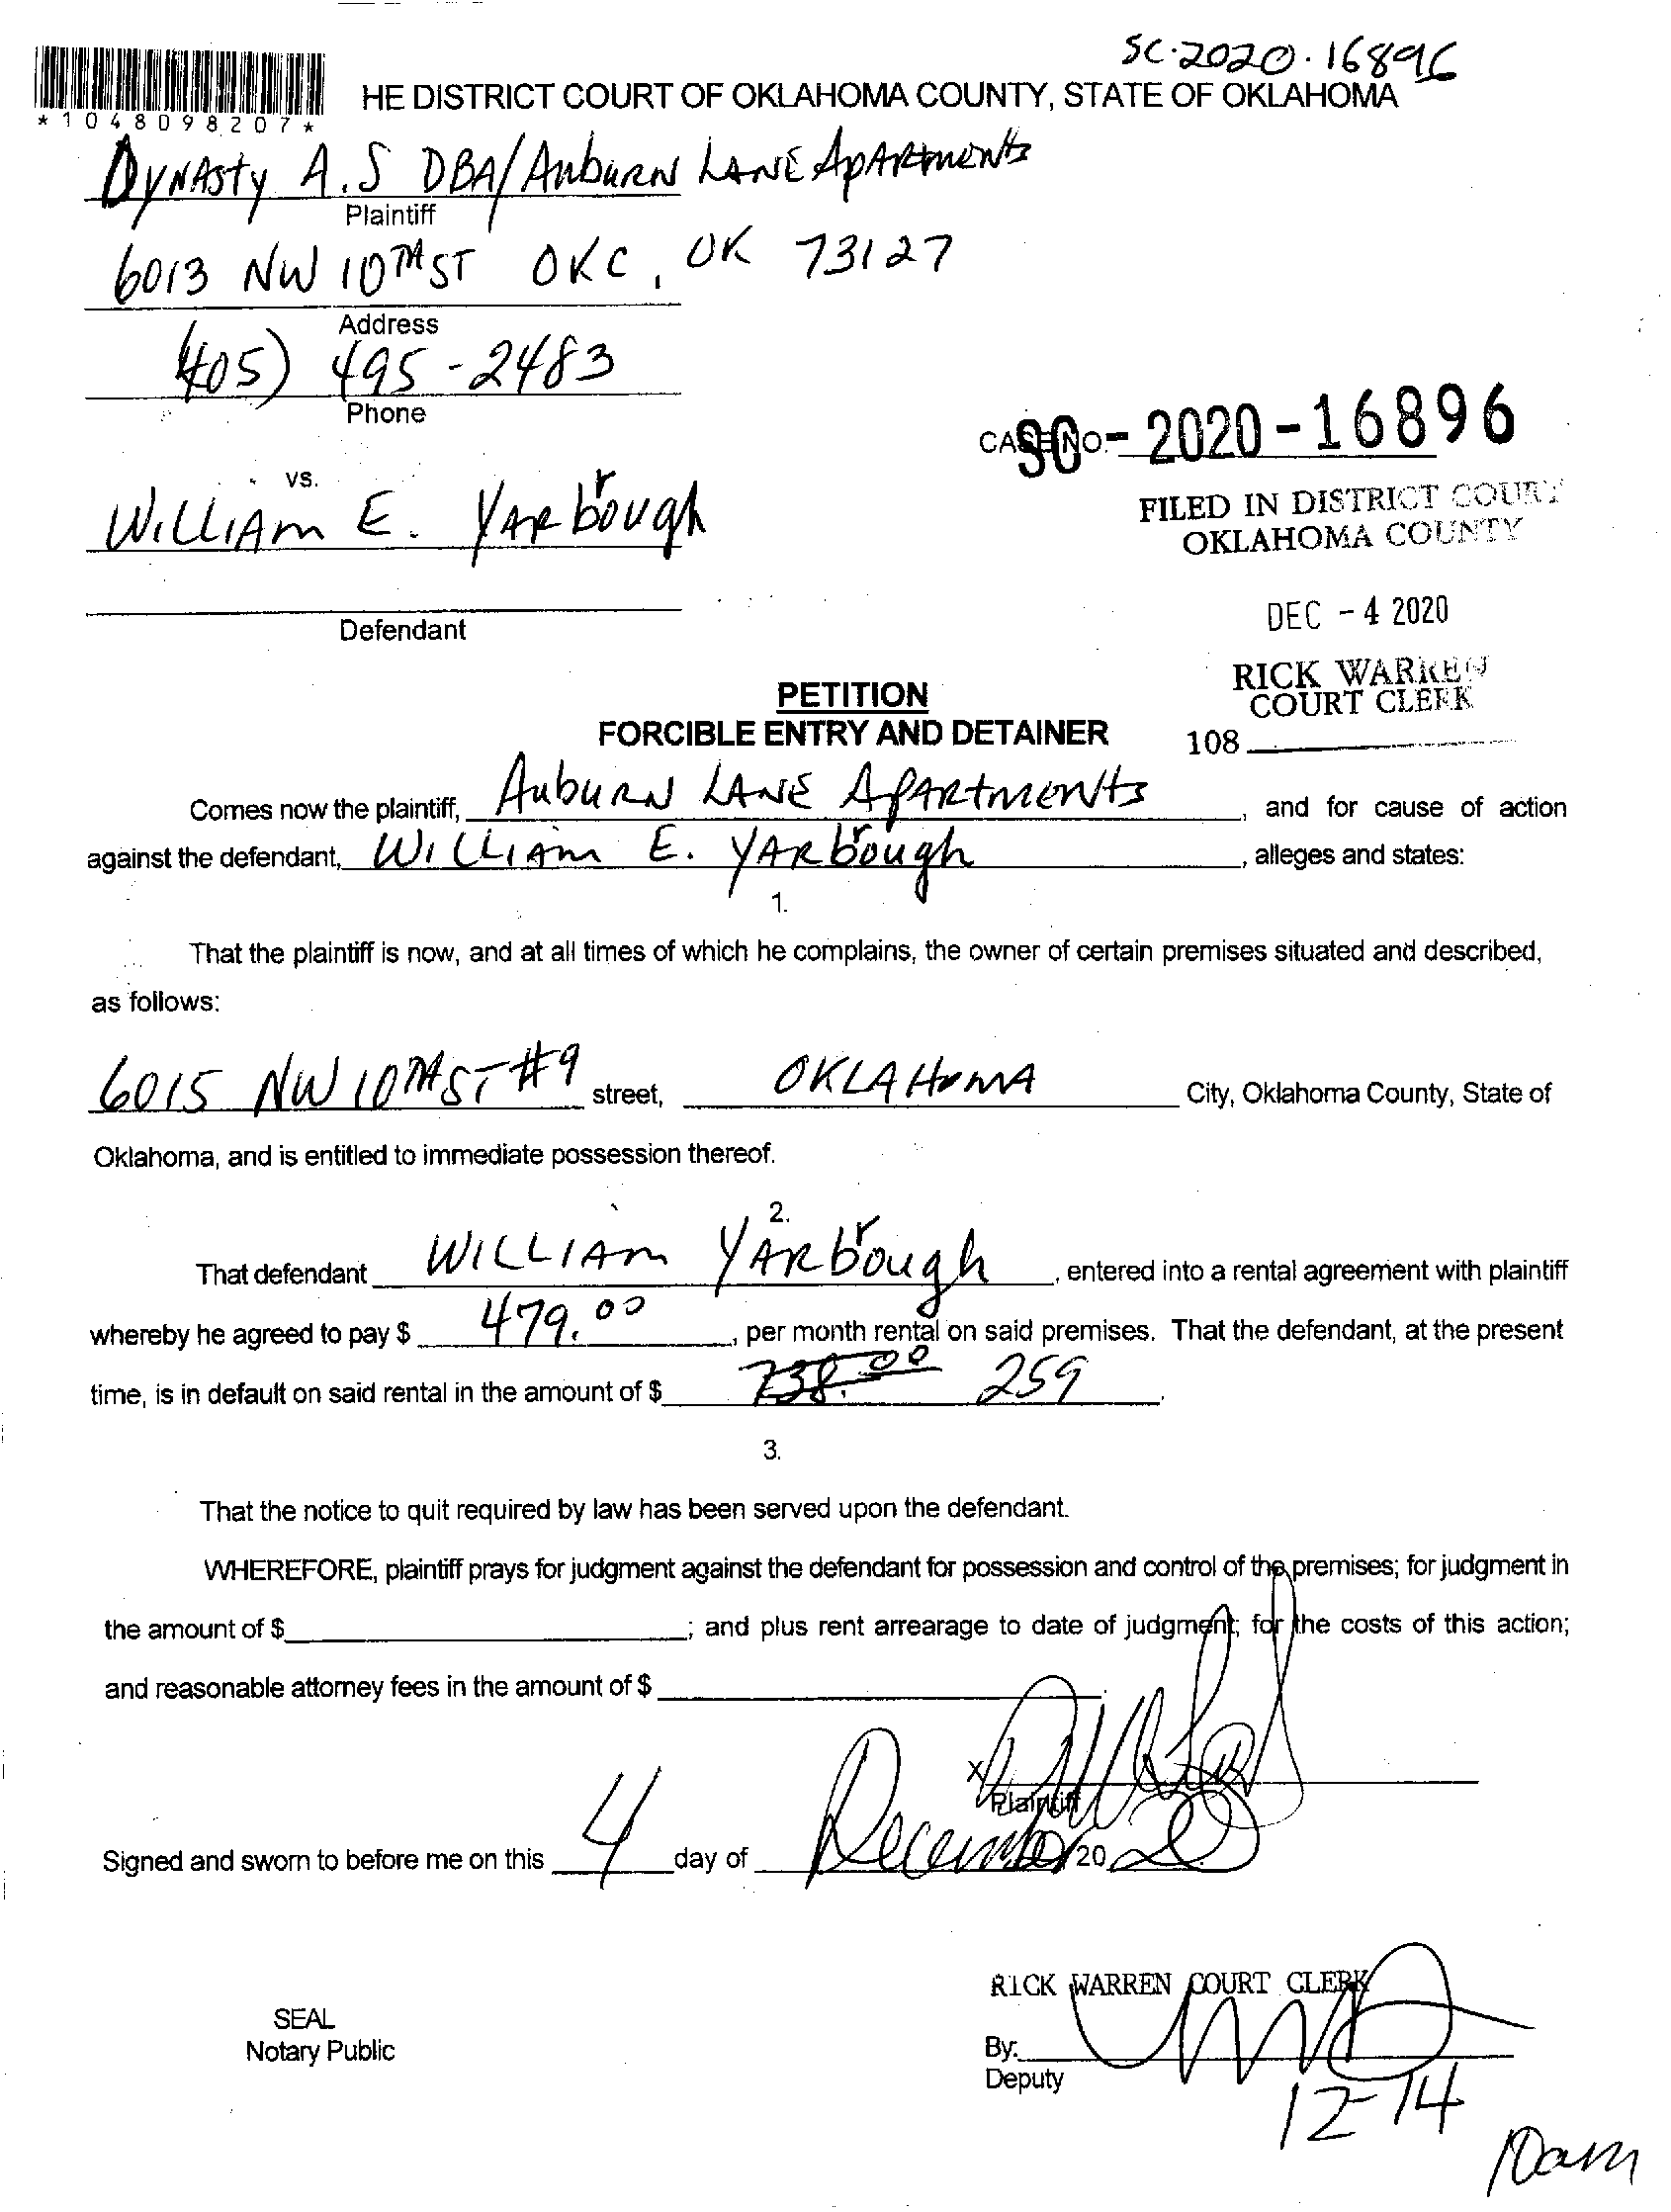 SC-2020-16896
HE DISTRICT COURT OF OKLAHOMA COUNTY, STATE OF OKLAHOMA
*1048098207*
DYNASTY A.S DBA/AUBURN LANE APARTMENTS
Plaintiff
6013 NW 10TH ST OKC, OK 73127
Address
(405) 495-2483
Phone
CASE NO. SC-2020-16896
vs.
FILED IN DISTRICT COURT
OKLAHOMA COUNTY
WILLIAM E. YARbrough
DEC - 4 2020
Defendant
RICK WARREN
COURT CLERK
108
PETITION
FORCIBLE ENTRY AND DETAINER
Comes now the plaintiff, AUBURN LANE APARTMENTS, and for cause of action
against the defendant, WILLIAM E. YARbrough, alleges and states:
1.
That the plaintiff is now, and at all times of which he complains, the owner of certain premises situated and described,
as follows:
6015 NW 10TH ST #9 street, OKLAHOMA City, Oklahoma County, State of
Oklahoma, and is entitled to immediate possession thereof.
2.
That defendant WILLIAM YARbrough, entered into a rental agreement with plaintiff
whereby he agreed to pay $ 479.00, per month rental on said premises. That the defendant, at the present
time, is in default on said rental in the amount of $ 738.00 259.
3.
That the notice to quit required by law has been served upon the defendant.
WHEREFORE, plaintiff prays for judgment against the defendant for possession and control of the premises; for judgment in
the amount of $ ; and plus rent arrearage to date of judgment; for the costs of this action;
and reasonable attorney fees in the amount of $
X
Plaintiff
Signed and sworn to before me on this 4 day of December, 2020
RICK WARREN COURT CLERK
SEAL
Notary Public
By:
Deputy
12-14
10am